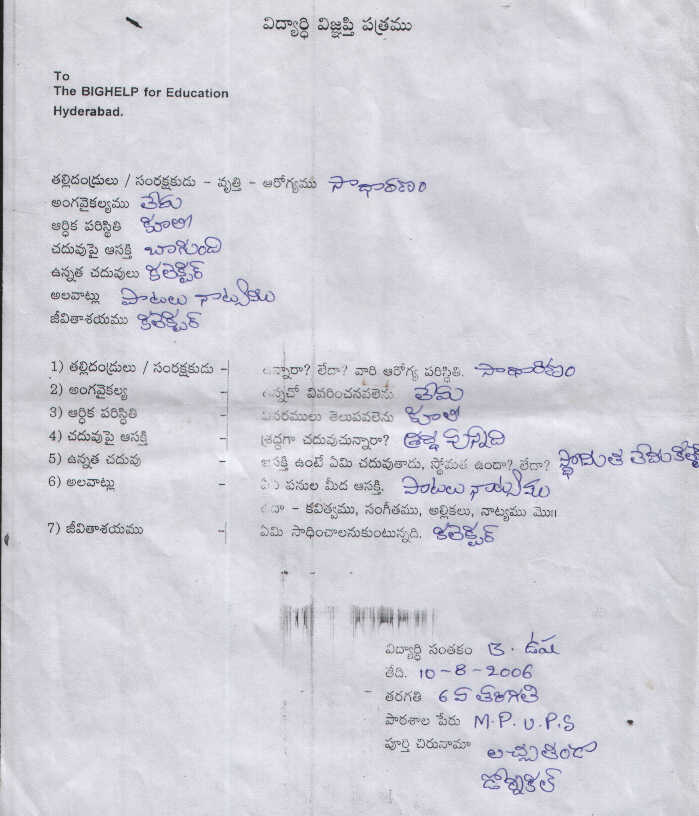 విద్యార్ధి విజ్ఞప్తి పత్రము
To
The BIGHELP for Education
Hyderabad.
తల్లిదండ్రులు / సంరక్షకుడు - వృత్తి - ఆరోగ్యము సాధారణం
అంగవైకల్యము లేదు
ఆర్ధిక పరిస్థితి కూలి
చదువుపై ఆసక్తి బాగుంది
ఉన్నత చదువులు కలెక్టర్
అలవాట్లు పాటలు నాట్యము
జీవితాశయము కలెక్టర్
1) తల్లిదండ్రులు / సంరక్షకుడు - ఉన్నారా? లేదా? వారి ఆరోగ్య పరిస్థితి. సాధారణం
2) అంగవైకల్య - ఉన్నచో వివరించవలెను లేదు
3) ఆర్ధిక పరిస్థితి - వివరములు తెలుపవలెను కూలి
4) చదువుపై ఆసక్తి - శ్రద్ధగా చదువుచున్నారా? శ్రద్ధ వున్నది
5) ఉన్నత చదువు - ఆసక్తి ఉంటే ఏమి చదువుతాడు, స్తోమత ఉందా? లేదా? స్థోమత లేదు
6) అలవాట్లు - ఏ పనుల మీద ఆసక్తి. పాటలు నాట్యము
లేదా - కవిత్వము, సంగీతము, అల్లికలు, నాట్యము మొ॥
7) జీవితాశయము - ఏమి సాధించాలనుకుంటున్నది. కలెక్టర్
విద్యార్ధి సంతకం B. ఉష
తేది. 10-8-2006
తరగతి 6వ తరగతి
పాఠశాల పేరు M.P.U.P.S
పూర్తి చిరునామా లచ్చుతండా
డోర్నకల్